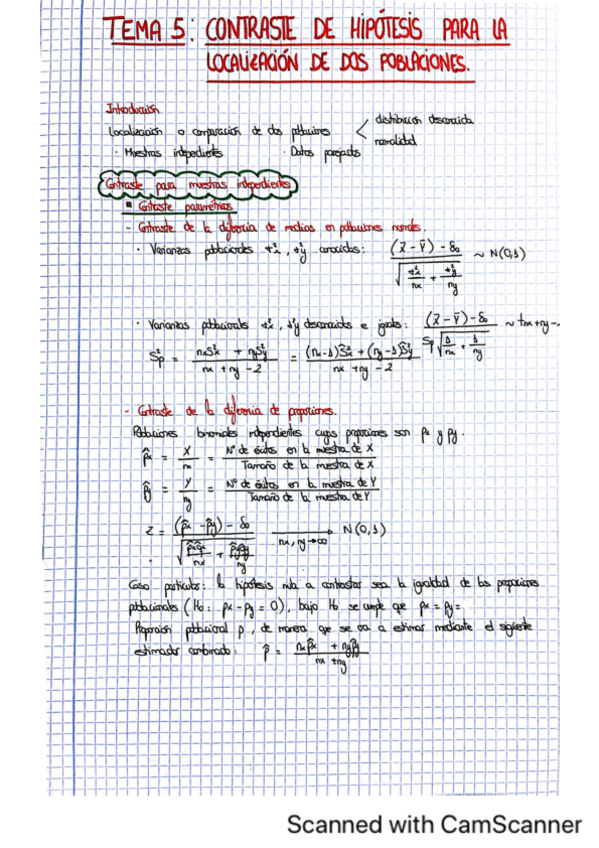 TEMA 5: CONTRASTE DE HIPÓTESIS PARA LA
LOCALIZACIÓN DE DOS POBLACIONES.
Introducción
Localización o comparación de dos poblaciones < distribución desconocida
normalidad
· Muestras independientes · Datos pareados
Contraste para muestras independientes
▪ Contraste paramétricos
- Contraste de la diferencia de medias en poblaciones normales.
· Varianzas poblacionales σ²x, σ²y conocidas: ((x̄ - ȳ) - δ₀) / √(σ²x/nx + σ²y/ny) ~ N(0,1)
· Varianzas poblacionales σ²x, σ²y desconocidas e iguales: ((x̄ - ȳ) - δ₀) / (Sp √(1/nx + 1/ny)) ~ tnx+ny-
S²p = (nxS²x + nyS²y) / (nx + ny - 2) = ((nx-1)Ŝ²x + (ny-1)Ŝ²y) / (nx + ny - 2)
- Contraste de la diferencia de proporciones.
Poblaciones binomiales independientes cuyas proporciones son px y py.
p̂x = X/nx = Nº de éxitos en la muestra de X / Tamaño de la muestra de X
p̂y = Y/ny = Nº de éxitos en la muestra de Y / Tamaño de la muestra de Y
Z = ((p̂x - p̂y) - δ₀) / √(p̂xq̂x/nx + p̂yq̂y/ny) → nx, ny→∞ N(0,1)
Caso particular: la hipótesis nula a contrastar sea la igualdad de las proporciones
poblacionales (H₀: px - py = 0), bajo H₀ se cumple que px = py =
Proporción poblacional p, de manera que se va a estimar mediante el siguiente
estimador combinado: p̂ = (nxp̂x + nyp̂y) / (nx + ny)
Scanned with CamScanner